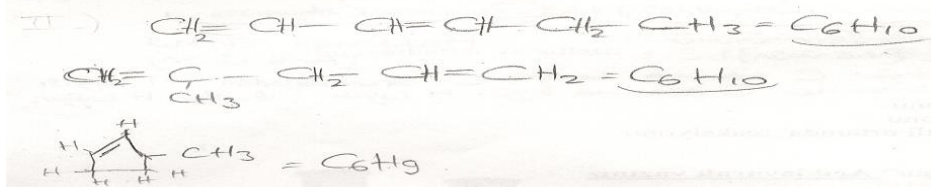 II-) CH₂= CH- CH= CH- CH₂- CH₃ = C₆H₁₀
CH₂= C - CH₂- CH=CH₂ = C₆H₁₀
CH₃
H
H CH₃ = C₆H₉
H H H H